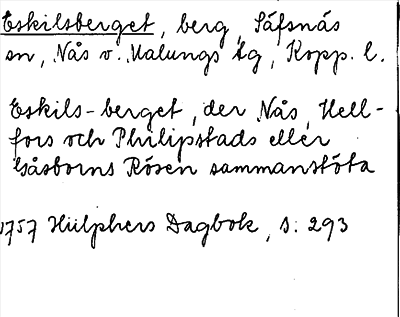 Eskilsberget, berg, Säfsnäs
sn, Nås o. Malungs tg, Kopp. l.
Eskils-berget, der Nås, Hell-
fors och Philipstads eller
Gåsborns Rösen sammanstöta
1757 Hülphers Dagbok, s. 293